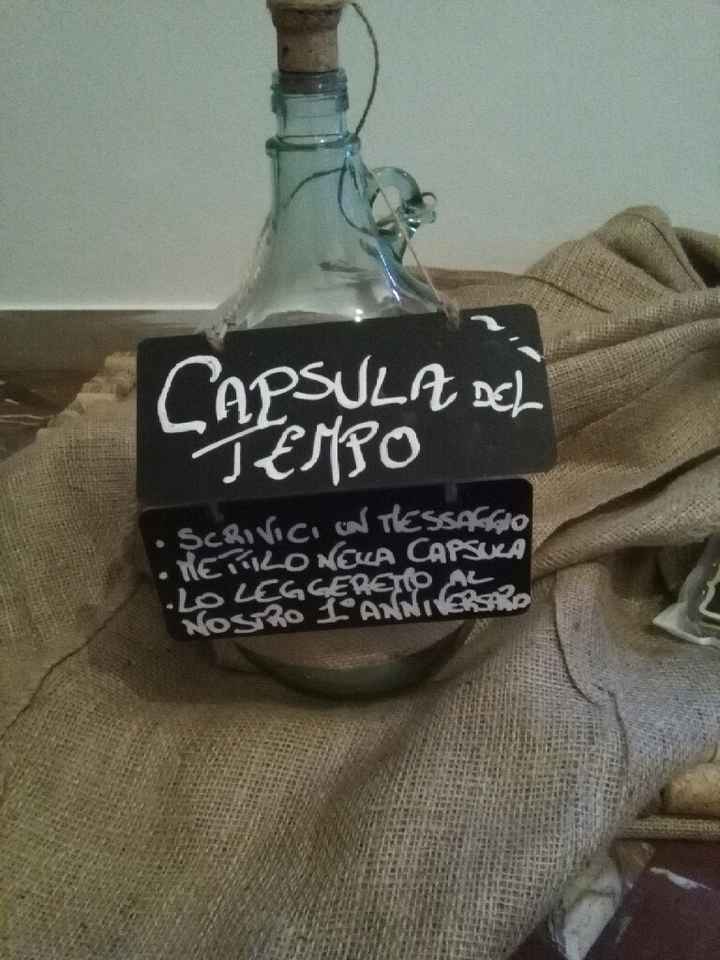 CAPSULA DEL
TEMPO
• SCRIVICI UN MESSAGGIO
• METTILO NELLA CAPSULA
• LO LEGGEREMO AL
NOSTRO 1° ANNIVERSARIO